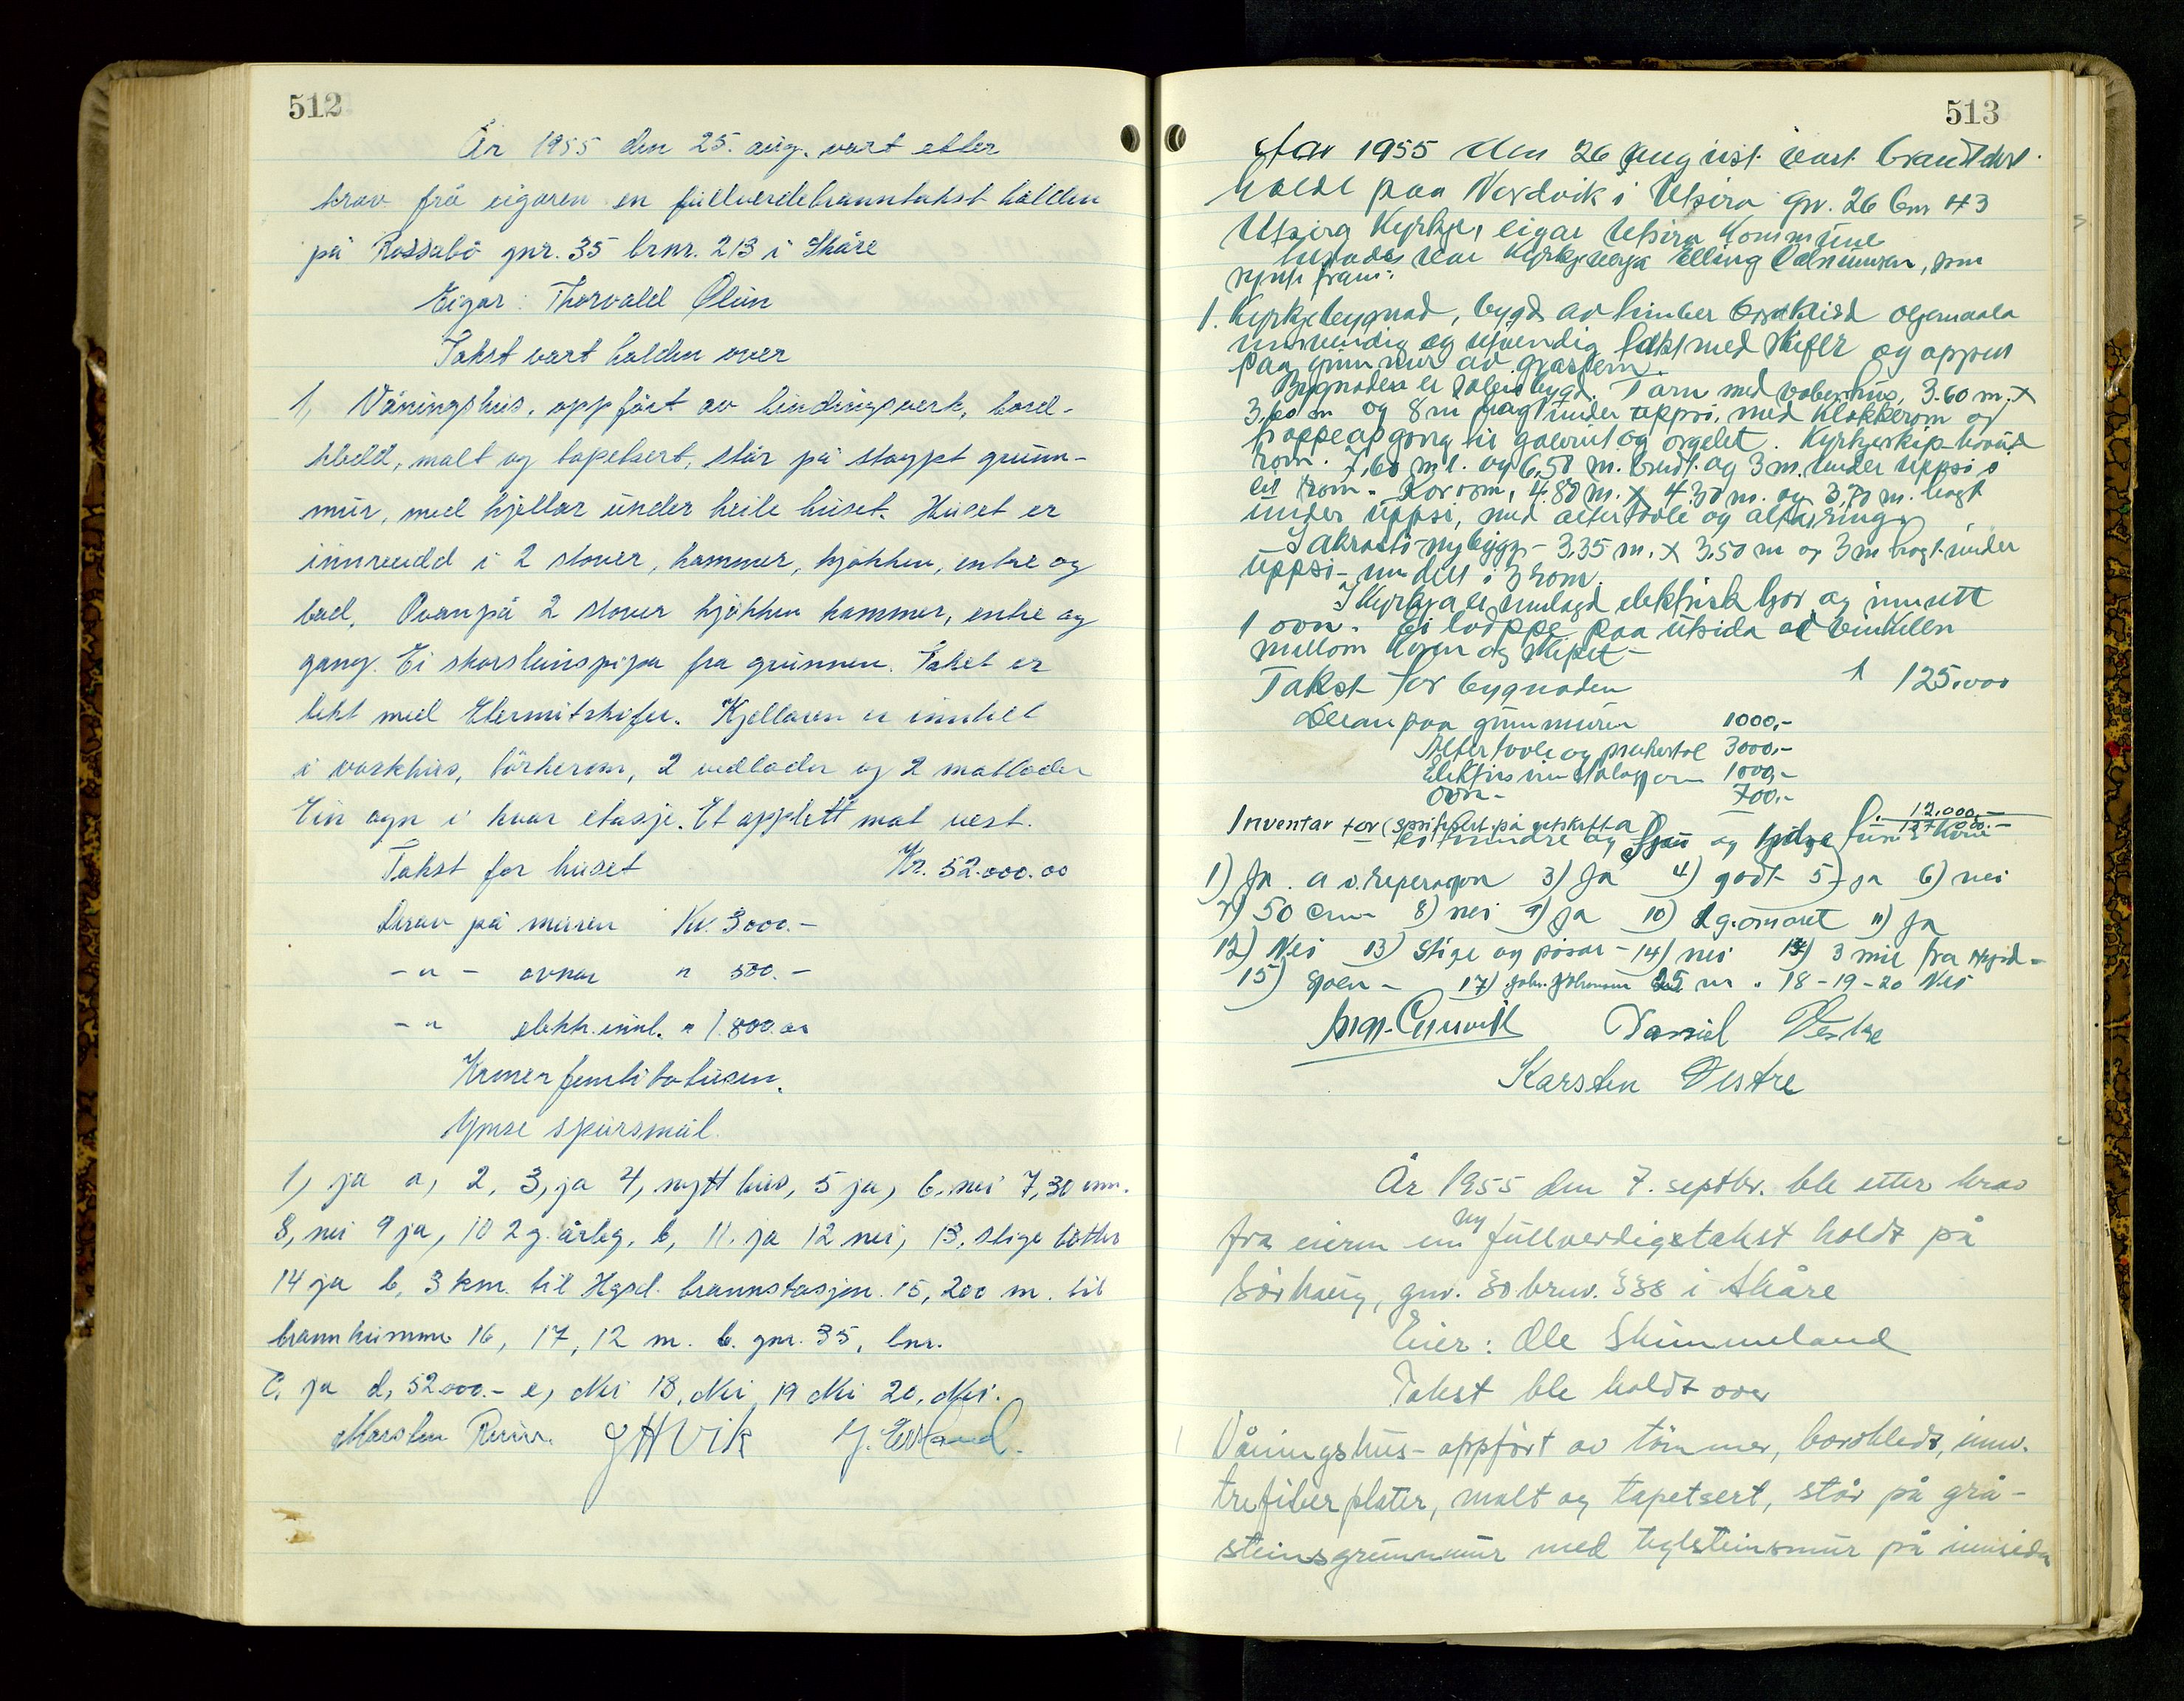 512
År 1955 den 25. aug. vart etter
krav frå eigaren en fullverdebranntakst halden
på Rossabö gnr. 35 brnr. 213 i Skåre
Eigar: Thorvald Ølin
Takst vart halden over
1, Våningshus, oppfört av bindingsverk, bord-
kledd, malt og tapetsert, står på stöypt grunn-
mur, med kjellar under heile huset. Huset er
innreidd i 2 stover, kammer, kjökken, entre og
bad. Ovanpå 2 stover kjökken kammer, entre og
gang. Ei skorsteinspipa fra grunnen. Taket er
tekt med Eternitskifer. Kjellaren er inndelt
i vaskhus, törkerom, 2 vedboder og 2 matboder
Ein ogn i hvar etasje. Et opplett mot vest.
Takst for huset Kr. 52.000.00
Derav på muren Kr. 3000.-
- " - ovnar " 500.-
- " elektr. innl. " 1.800.00
Kroner femtitotusen.
Ymse spursmål.
1, ja a, 2, 3, ja 4, nytt hus, 5 ja, 6. nei 7, 30 cm.
8, nei 9 ja, 10 2 g. årleg, b, 11. ja 12 nei, 13, stige bötter
14 ja b, 3 km. til Hgsd. brannstasjon. 15, 200 m. til
brannkumme 16, 17, 12 m. b. gnr. 35, bnr.
c, ja d, 52.000.- e, Nei 18, Nei 19 Nei 20, Nei.
JHVik
513
Aar 1955 den 26 august vart brandtakst
holdt paa Nordvik i Utsira gnr. 26 bnr 43
Utsira Kyrkje, eigar Utsira Kommune
tilstades var Kyrkjeverja Elling , som
synte fram:
1. Kyrkjebygnad, bygd av timber bordklædd oljemaala
innvendig og utvendig takt med skifer og oppsett
paa grunnmur av graastein.
Bygnaden er saaleis bygd. Tårn med vaabenhus, 3.60 m. x
3,60 m og 8 m høgt under uppsi, med Klokkerom og
trappeopgang til galleriet og orgelet. Kyrkjeskip hovud
rom. 7,60 m l. og 6,50 m. breidt. og 3 m. under uppsi i
eit rom. Korrom, 4.80 m. x 4.30 m. og 3,70 m. høgt
under uppsi, med altertavle og altarring
Sakrasti-nybygg - 3,35 m. x 3,50 m og 3 m høgt under
uppsi - inndelt i 3 rom.
I Kyrkja er innlagd elektrisk ljos og innsett
1 ovn. Ei trappe paa utsida ad vinkelen
mellom koren og skipet -
Takst for bygnaden 1 125.000
Derav paa grunnmuren 1000,-
Altertavle og prekestol 3000,-
Elektrisk innstalasjon 1000,-
ovn - 700.-
Inventar for (spesifisert på utskrifta) 12.000,-
137.000.-
Eitthundre og og tusen Kroner
1) Ja. a v. reperasjon 3) Ja 4) godt 5) ja 6) nei
7) 50 cm 8) nei 9) ja 10) 1 g. omaret 11) ja
12) Nei 13) Stige og pösar - 14) nei 3 mil fra Hgsd -
15) 17) 25 m. 18 - 19 - 20 Nei
Daniel Vestre
Karsten Vestre
År 1955 den 7. septbr. ble etter krav
fra eieren en ny fullverdigetakst holdt på
Sörhaug, gnr. 30 brnr. 338 i Skåre
Eier: Ole Skimmeland
Takst ble holdt over
1 Våningshus - oppfört av tömmer, bordkledt, innv.
trefiberplater, malt og tapetsert, står på grå-
steinsgrunnmur med teglsteinsmur på innsida